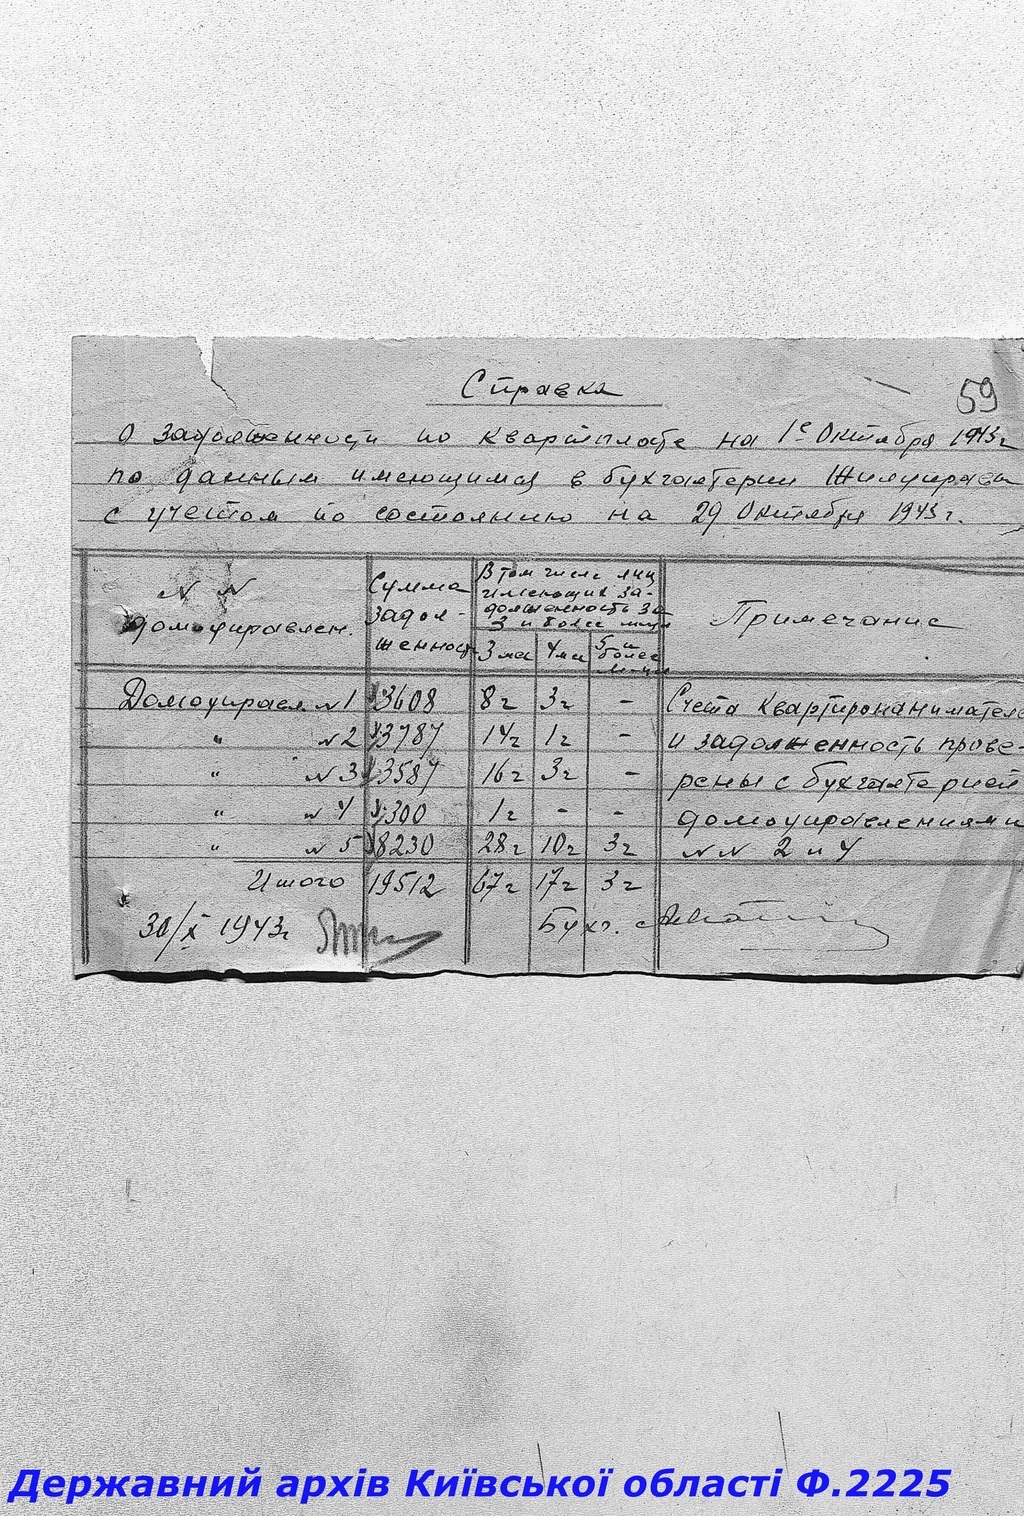 Справка
59
О задолженности по квартплате на 1е Октября 1943г
по данным имеющимся в бухгалтерии Жилуправл
с учетом по состоянию на 29 Октября 1943г.
N N домоуправлен.
Сумма задол-женност
В том числе лиц имеющих за-долженность за 3 и более месяц
3 мес
4 мес
5 и более месяцев
Примечание
Домоуправл. N 1 3608 8г 3г -
" N 2 3787 14г 1г -
" N 3 3587 16г 3г -
" N 4 300 1г - -
" N 5 8230 28г 10г 3г
Итого 19512 67г 17г 3г
Счета квартиронанимателе
и задолженность прове-
рены с бухгалтерией
домоуправлениями
N N 2 и 4
30/X 1943г
Бухг.
Державний архів Київської області Ф.2225